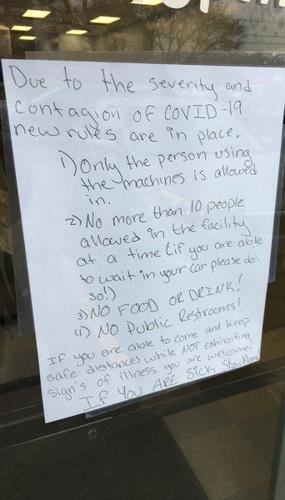 Due to the severity and
contagion of COVID-19
new rules are in place.
1) Only the person using
the machines is allowed
in.
2) No more than 10 people
allowed in the facility
at a time (if you are able
to wait in your car please do
so!)
3) NO FOOD OR DRINK!
4) NO Public Restrooms!
If you are able to come and keep
safe distances while NOT exhibiting
sign's of illness you are welcome!
If YOU ARE SICK Stay Home